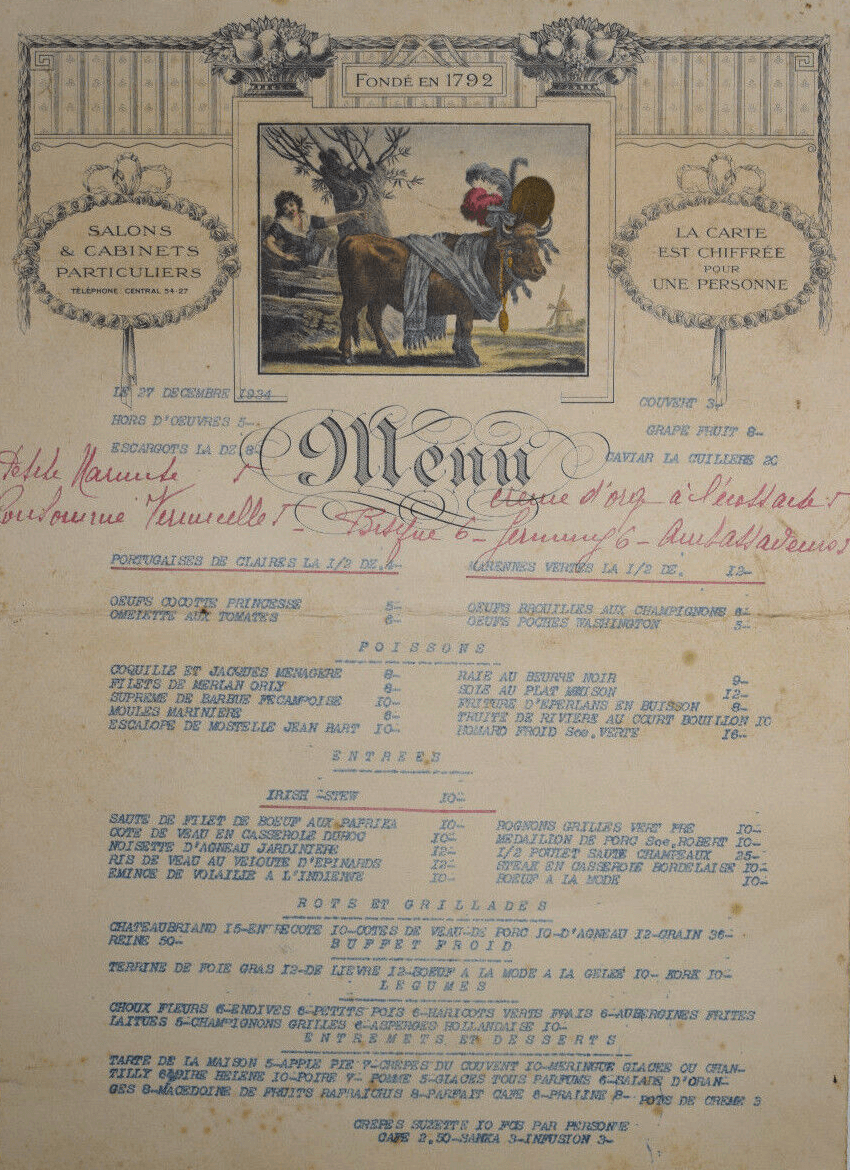 FONDÉ EN 1792
SALONS
& CABINETS
PARTICULIERS
TÉLÉPHONE : CENTRAL 54-27
LA CARTE
EST CHIFFRÉE
POUR
UNE PERSONNE
LE 27 DECEMBRE 1934
COUVERT 3-
HORS D'OEUVRES 5-
GRAPE FRUIT 8-
ESCARGOTS LA DZ 8-
CAVIAR LA CUILLERE 20
Menu
Petite Marmite 5
Creme d'org à l'écossaise 5
Consommé Vermicelle 5- Bisque 6- Germiny 6- Ambassadeurs 5
PORTUGAISES DE CLAIRES LA 1/2 DZ.
MARENNES VERTES LA 1/2 DZ. 12-
OEUFS COCOTTE PRINCESSE 5-
OEUFS BROUILLES AUX CHAMPIGNONS 8-
OMELETTE AUX TOMATES 6-
OEUFS POCHES WASHINGTON 5-
POISSONS
COQUILLE ST JACQUES MENAGERE 8-
RAIE AU BEURRE NOIR 9-
FILETS DE MERLAN ORLY 8-
SOLE AU PLAT MAISON 12-
SUPREME DE BARBUE FECAMPOISE 10-
FRITURE D'EPERLANS EN BUISSON 8-
MOULES MARINIERE 6-
TRUITE DE RIVIERE AU COURT BOUILLON 10
ESCALOPE DE MOSTELLE JEAN BART 10-
HOMARD FROID Sce.VERTE 16-
ENTREES
IRISH -STEW 10-
SAUTE DE FILET DE BOEUF AUX PAPRIKA 10-
ROGNONS GRILLES VERT PRE 10-
COTE DE VEAU EN CASSEROLE DUROC 10-
MEDAILLON DE PORC Sce.ROBERT 10-
NOISETTE D'AGNEAU JARDINIERE 12-
1/2 POULET SAUTE CHAMPEAUX 25-
RIS DE VEAU AU VELOUTE D'EPINARDS 12-
STEAK EN CASSEROLE BORDELAISE 10-
EMINCE DE VOLAILLE A L'INDIENNE 10-
BOEUF A LA MODE 10-
ROTS ET GRILLADES
CHATEAUBRIAND 15-ENTRECOTE 10-COTES DE VEAU-DE PORC 10-D'AGNEAU 12-GRAIN 36-
REINE 50-
BUFFET FROID
TERRINE DE FOIE GRAS 12-DE LIEVRE 12-BOEUF A LA MODE A LA GELEE 10- YORK 10-
LEGUMES
CHOUX FLEURS 6-ENDIVES 6-PETITS POIS 6-HARICOTS VERTS FRAIS 6-AUBERGINES FRITES
LAITUES 5-CHAMPIGNONS GRILLES 6-ASPERGES HOLLANDAISE 10-
ENTREMETS ET DESSERTS
TARTE DE LA MAISON 5-APPLE PIE 7-CREPES DU COUVENT 10-MERINGUE GLACEE OU CHAN-
TILLY 6-POIRE HELENE 10-POIRE 7- POMME 5-GLACES TOUS PARFUMS 6-SALADE D'ORAN-
GES 8-MACEDOINE DE FRUITS RAFRAICHIS 8-PARFAIT CAFE 8-PRALINE 8- POTS DE CREME 3
CREPES SUZETTE 10 FCS PAR PERSONNE
CAFE 2,50-SANKA 3-INFUSION 3-